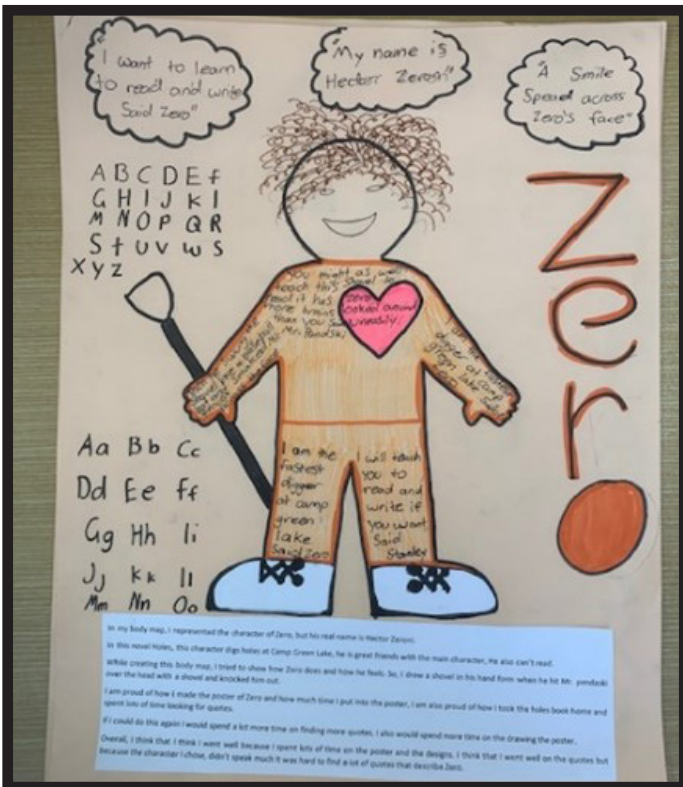 "I want to learn
to read and write
Said Zero"
"My name is
Hector Zeroni"
"A Smile
Spread across
Zero's face"
A B C D E f
G H I J K l
M N O P Q R
S t U V W S
X Y Z
Zero
You might as well
teach this shovel to
read it has
more brains
than you Said
Mr. Pendski
Zero
looked around
uneasily
digger at camp
green lake
I am the
fastest
digger
at camp
green
lake
Said Zero
I will teach
you to
read and
write if
you want
Said
Stanley
Aa Bb Cc
Dd Ee Ff
Gg Hh Ii
Jj Kk Ll
Mm Nn Oo
In my body map, I represented the character of Zero, but his real name is Hector Zeroni.
In this novel Holes, this character digs holes at Camp Green Lake, he is great friends with the main character, He also can't read.
While creating this body map, I tried to show how Zero does and how he feels. So, I drew a shovel in his hand form when he hit Mr. pendaski
over the head with a shovel and knocked him out.
I am proud of how I made the poster of Zero and how much time I put into the poster, I am also proud of how I took the holes book home and
spent lots of time looking for quotes.
If I could do this again I would spend a lot more time on finding more quotes, I also would spend more time on the drawing the poster.
Overall, I think that I think I went well because I spent lots of time on the poster and the designs. I think that I went well on the quotes but
because the character I chose, didn't speak much it was hard to find a lot of quotes that describe Zero.